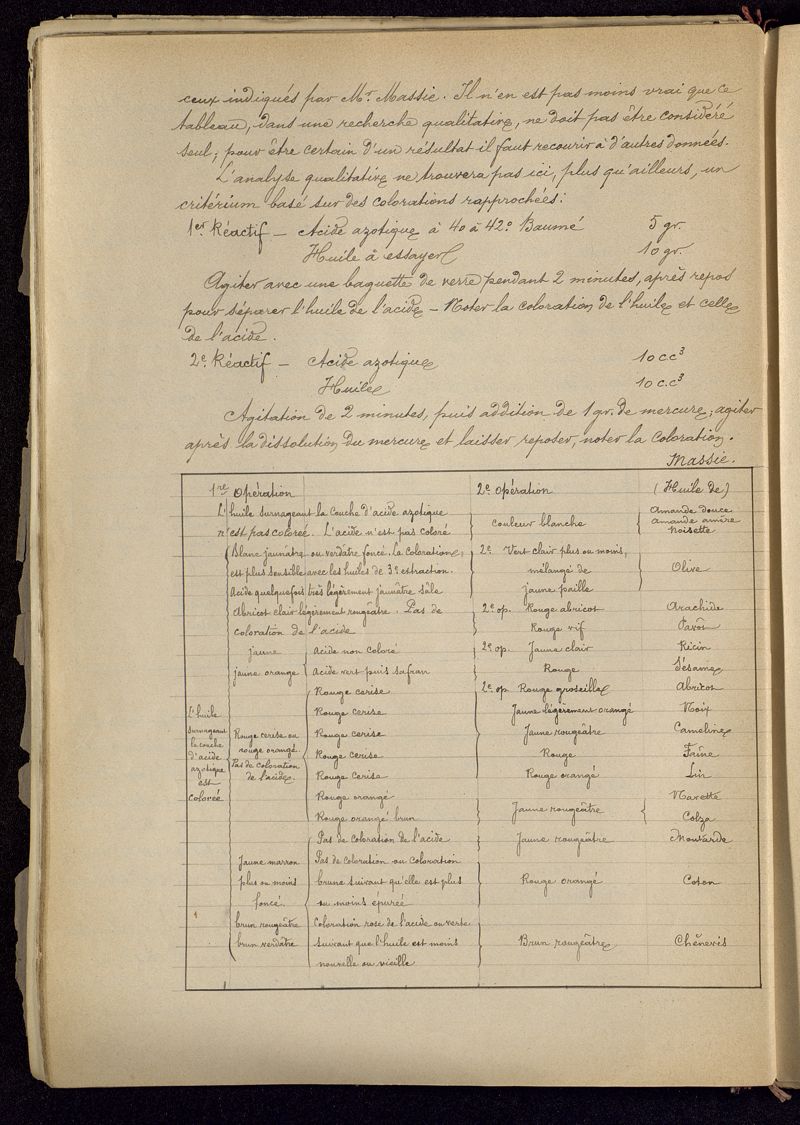 ceux indiqués par Mr. Massie. Il n'en est pas moins vrai que ce
tableau, dans une recherche qualitative, ne doit pas être considéré
seul; pour être certain d'un résultat il faut recourir à d'autres données.
L'analyse qualitative ne trouvera pas ici, plus qu'ailleurs, un
critérium basé sur des colorations rapprochées:
1er Réactif — Acide azotique à 40 à 42° Baumé 5 gr.
Huile à essayer 10 gr.
Agiter avec une baguette de verre pendant 2 minutes, après repos
pour séparer l'huile de l'acide — Noter la coloration de l'huile et celle
de l'acide.
2e Réactif — Acide azotique 10 c.c³
Huile 10 c.c³
Agitation de 2 minutes, puis addition de 1 gr. de mercure; agiter
après la dissolution du mercure et laisser reposer, noter la coloration.
Massie.
1re Opération 2e opération (Huile de)
L'huile surnageant la couche d'acide azotique
n'est pas colorée. L'acide n'est pas coloré couleur blanche
Amande douce
Amande amère
Noisette
Blanc jaunâtre ou verdâtre foncé. La coloration
est plus sensible avec les huiles de 3e extraction.
Acide quelquefois très légèrement jaunâtre sâle
2e Vert clair plus ou moins,
mélangé de
jaune paille
Olive
Abricot clair légèrement rougeâtre. Pas de
coloration de l'acide
2e op. Rouge abricot Arachide
Rouge vif Pavôt
jaune Acide non coloré 2e op. Jaune clair Ricin
jaune orange Acide vert puis safran Rouge Sésame
L'huile
surnageant
la couche
d'acide
azotique
est
colorée
Rouge cerise ou
rouge orangé.
Pas de coloration
de l'acide
Rouge cerise 2e op. Rouge groseille Abricot
Rouge cerise Jaune légèrement orangé Noix
Rouge cerise Jaune rougeâtre Cameline
Rouge cerise Rouge Faîne
Rouge cerise Rouge orangé Lin
Rouge orangé Navette
Rouge orangé brun Jaune rougeâtre Colza
Jaune marron
plus ou moins
foncé.
Pas de coloration de l'acide Jaune rougeâtre Moutarde
Pas de coloration ou coloration
brune suivant qu'elle est plus
ou moins épurée
Rouge orangé Coton
brun rougeâtre
brun verdâtre
Coloration rose de l'acide ou verte
suivant que l'huile est moins
nouvelle ou vieille
Brun rougeâtre Chênevis